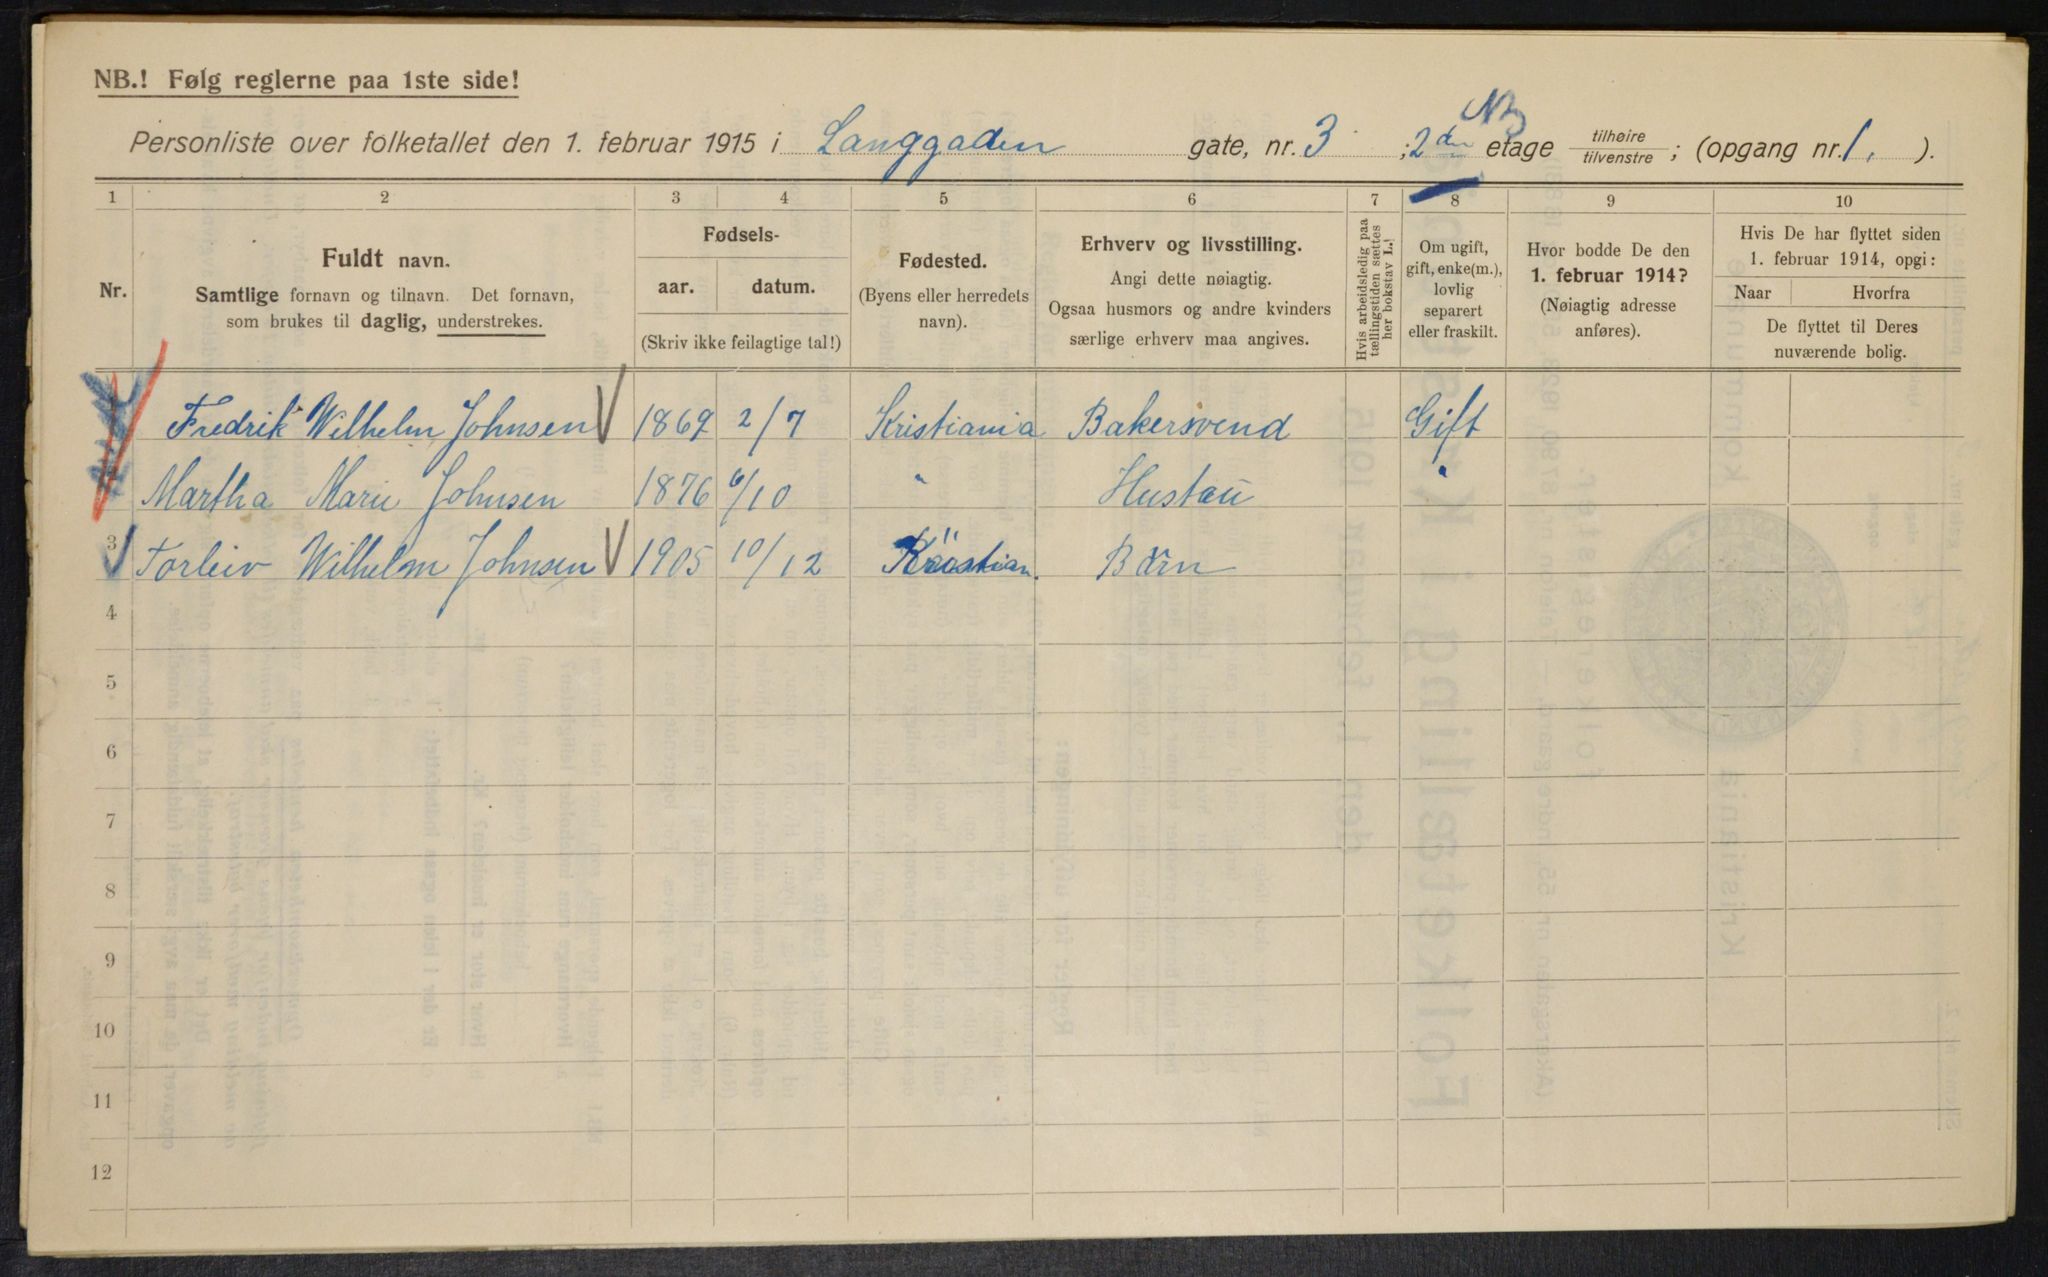 NB.! Følg reglerne paa 1ste side!
NB
Personliste over folketallet den 1. februar 1915 i Langgaden gate, nr. 3 ; 2den etage tilhøire / tilvenstre ; (opgang nr. 1. ).
1 2 3 4 5 6 7 8 9 10
Nr.
Fuldt navn.
Samtlige fornavn og tilnavn. Det fornavn,
som brukes til daglig, understrekes.
Fødsels-
aar. datum.
(Skriv ikke feilagtige tal!)
Fødested.
(Byens eller herredets
navn).
Erhverv og livsstilling.
Angi dette nøiagtig.
Ogsaa husmors og andre kvinders
særlige erhverv maa angives.
Hvis arbeidsledig paa
tællingstiden sættes
her bokstav L.!
Om ugift,
gift, enke(m.),
lovlig
separert
eller fraskilt.
Hvor bodde De den
1. februar 1914?
(Nøiagtig adresse
anføres).
Hvis De har flyttet siden
1. februar 1914, opgi:
Naar Hvorfra
De flyttet til Deres
nuværende bolig.
Fredrik Wilhelm Johnsen 1869 2/7 Kristiania Bakersvend Gift
Martha Marie Johnsen 1876 6/10 " Hustau "
3 Torleiv Wilhelm Johnsen 1905 10/12 Kristian. Barn
4
5
6
7
8
9
10
11
12